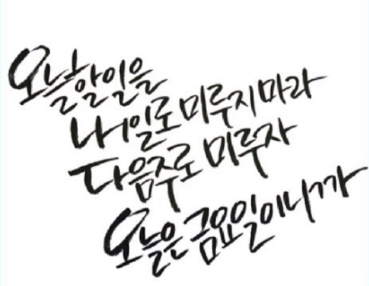 오늘 할 일을
내일로 미루지 마라
다음주로 미루자
오늘은 금요일이니까